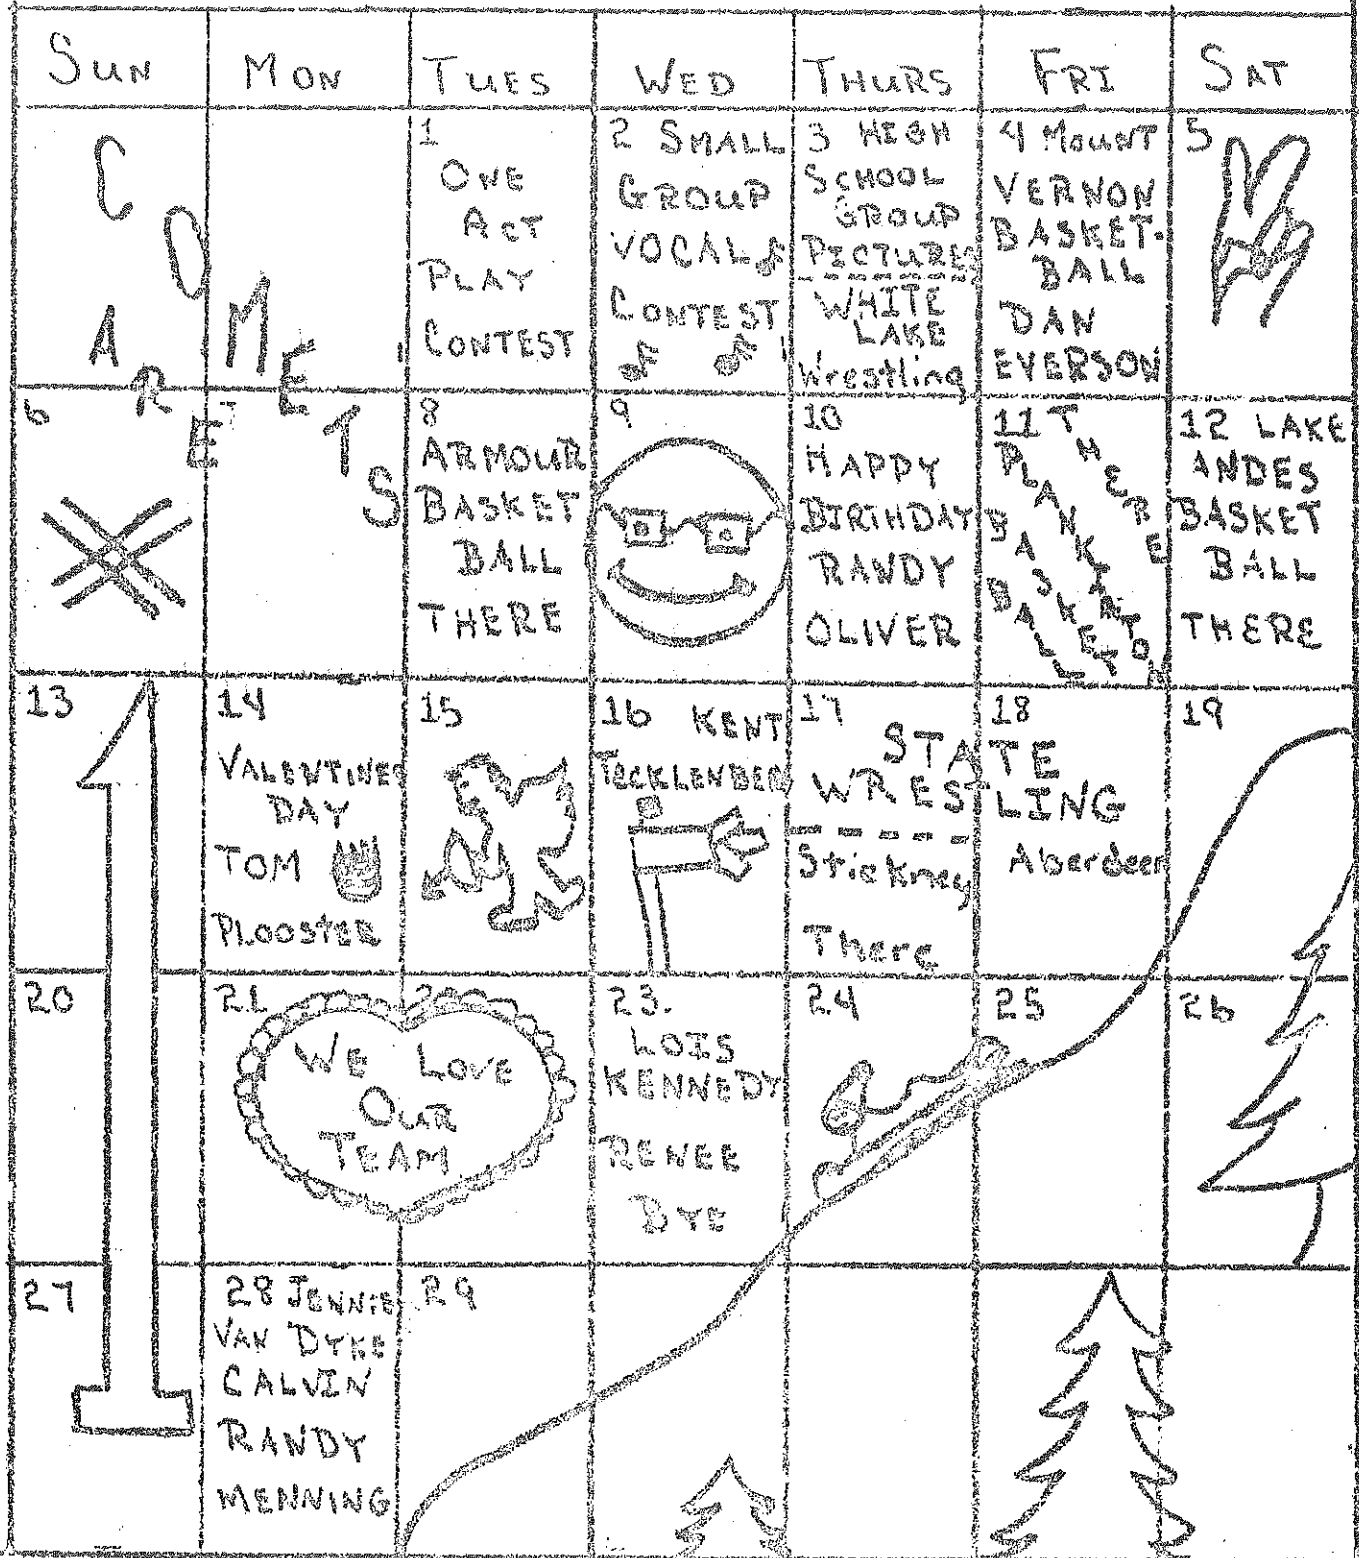 SUN MON TUES WED THURS FRI SAT
COMETS
ARE
1
ONE
ACT
PLAY
CONTEST
2 SMALL
GROUP
VOCAL
CONTEST
3 HIGH
SCHOOL
GROUP
PICTURES
WHITE
LAKE
Wrestling
4 MOUNT
VERNON
BASKET-
BALL
DAN
EVERSON
5
6
7
8
ARMOUR
BASKET
BALL
THERE
9
10
HAPPY
BIRTHDAY
RANDY
OLIVER
11
THERE
PLANKINTON
BASKET
BALL
12 LAKE
ANDES
BASKET
BALL
THERE
13
1
14
VALENTINES
DAY
TOM
PLOOSTER
15
16 KENT
TECKLENBERG
17
18
STATE
WRESTLING
Stickney
There
Aberdeen
19
20
21
22
WE LOVE
OUR
TEAM
23.
LOIS
KENNEDY
RENEE
DYE
24
25
26
27
28 JENNIE
VAN DYKE
CALVIN
RANDY
MENNING
29